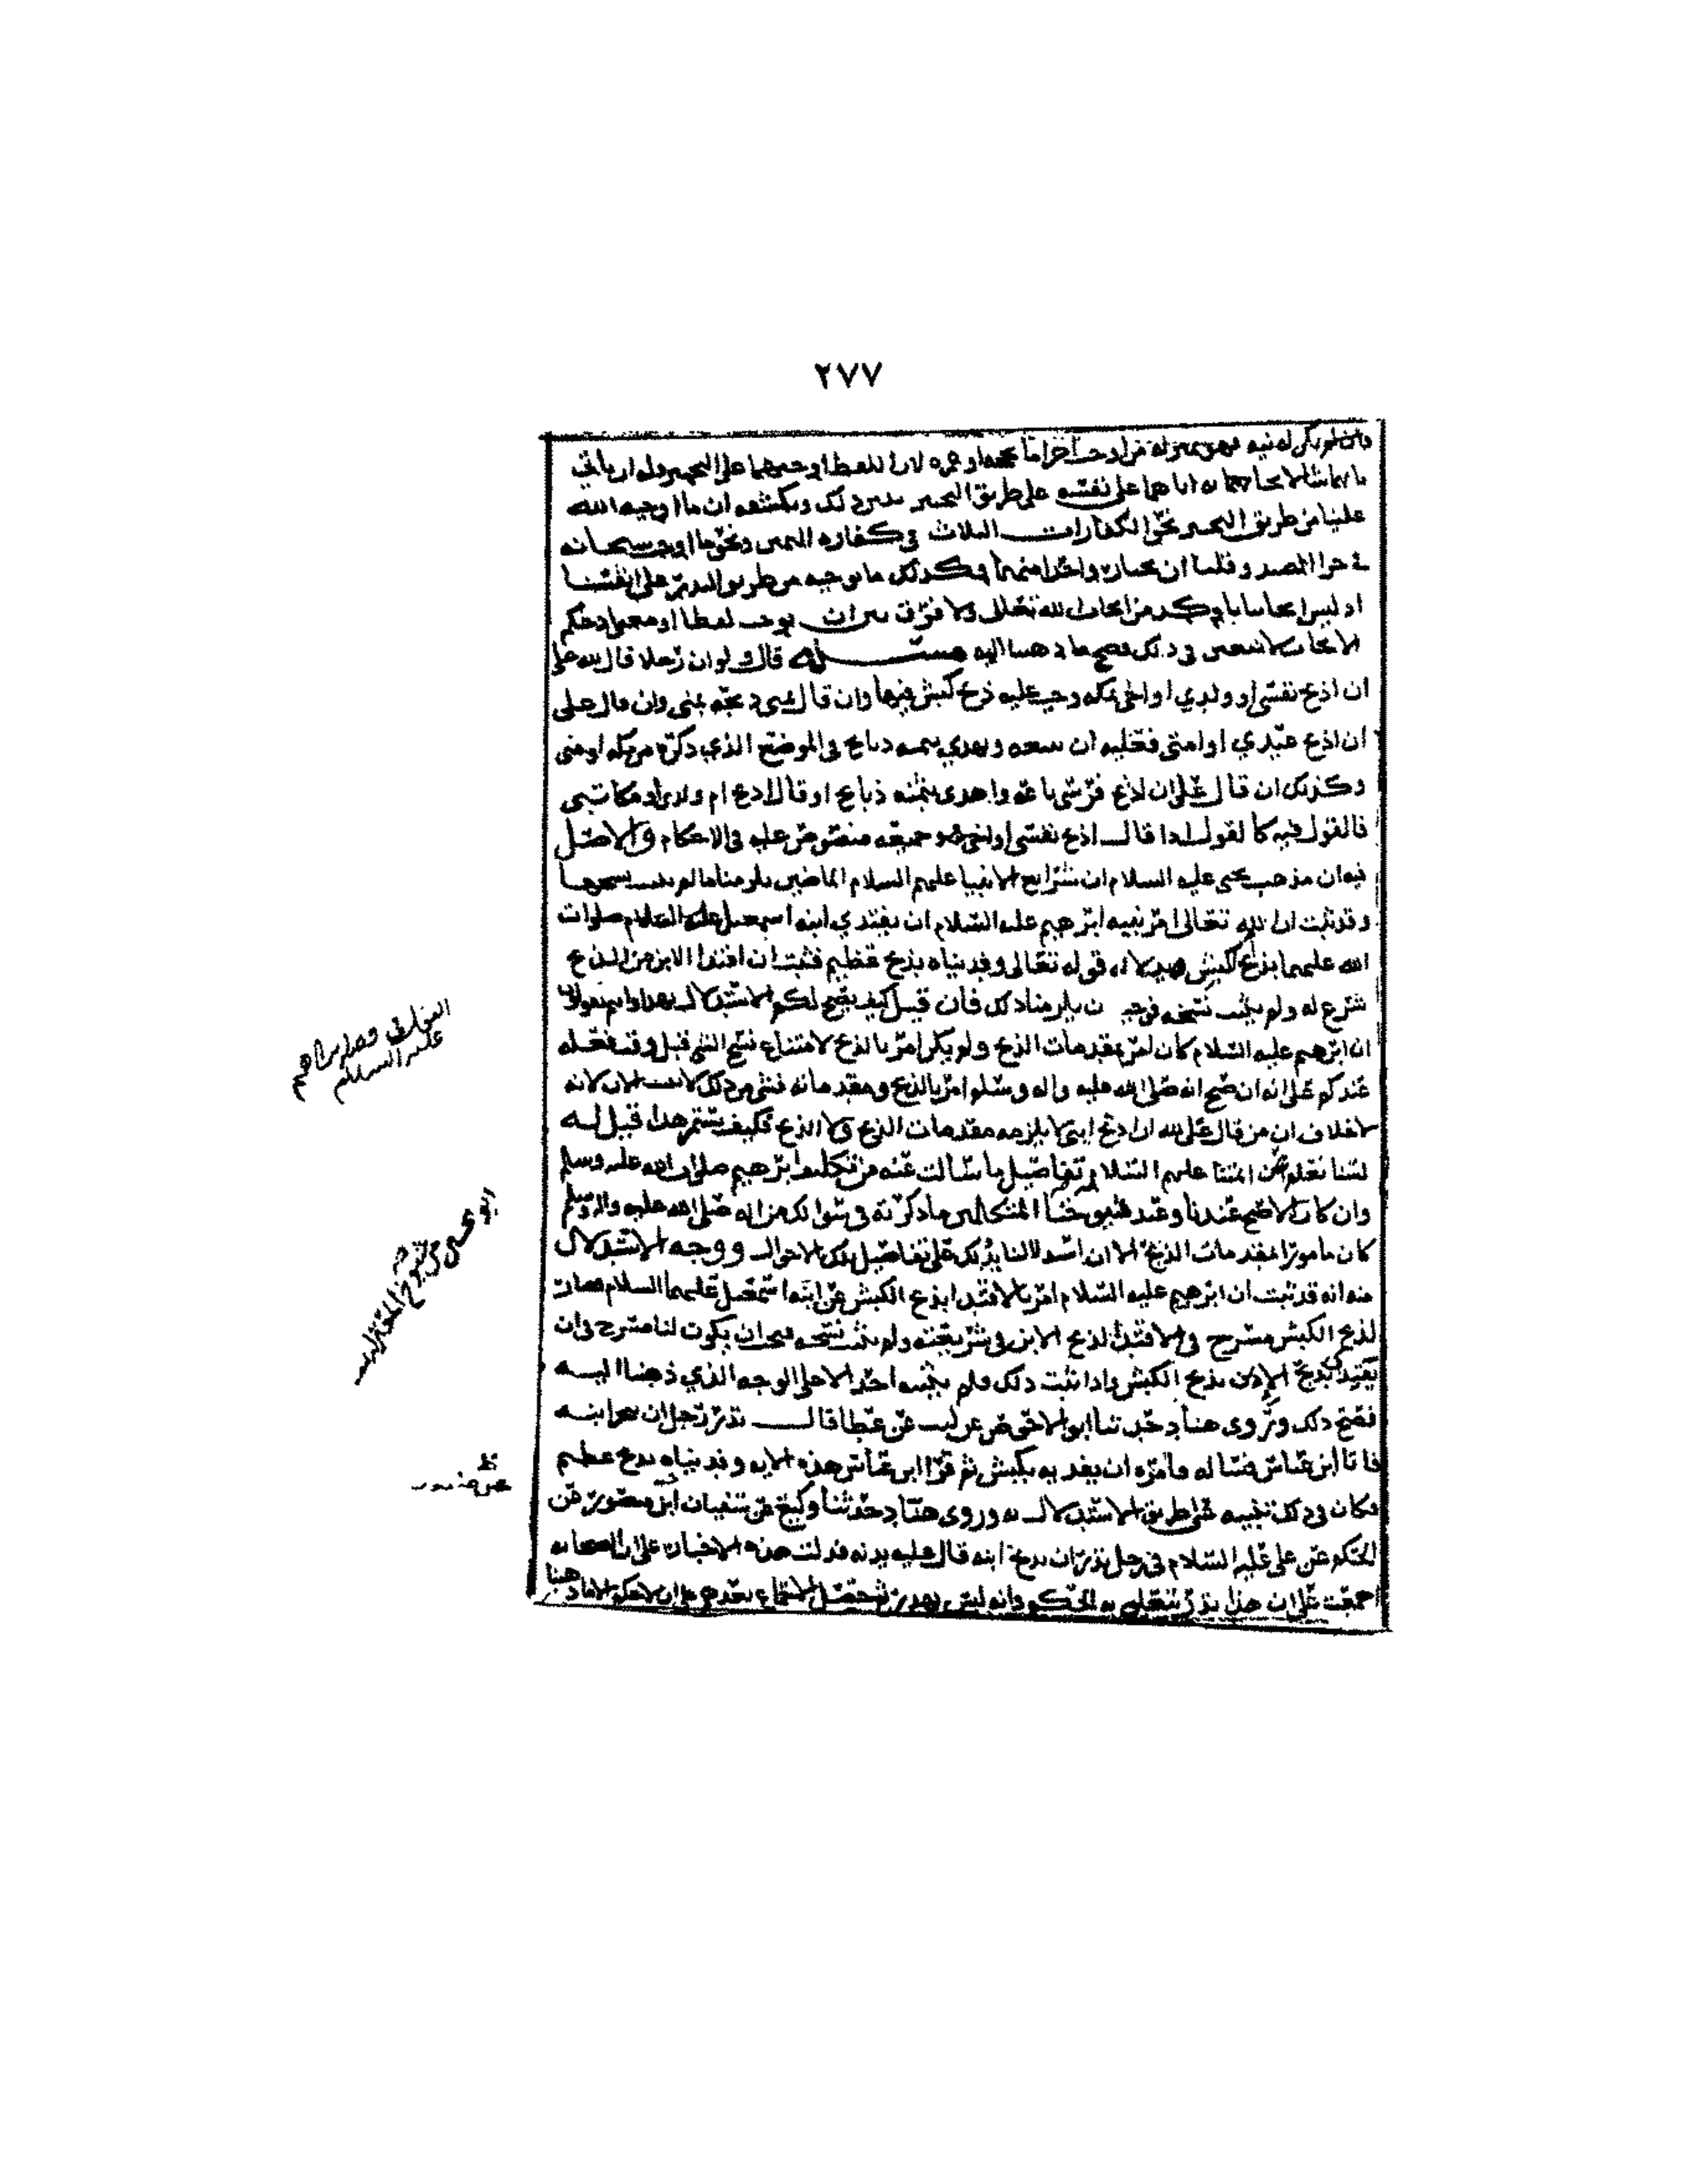 ٢٧٧
وان لم يكن له نيه فهو بمنزله من اوجب احراما بحجه او عمره لان اللفظ اوجبهما على التخيير وله ان ياتي
بايهما شا لايجابه اياهما على نفسه على طريق التخيير ذلك ان ما اوجبه الله
علينا من طريق التخيير نحو الكفارات الثلاث في كفاره اليمين ونحو ما اوجب سبحانه
في جزا الصيد وقلنا ان نختار واحدا منهما فكذلك ما نوجبه من طريق النذر على انفسنا
اذ ليس ايجابنا باوكد من ايجاب الله تعالى ولا فرق بين ان يوجب لفظا او معنى
الايجاب في ذلك فصح ما ذهبنا اليه مسئله قال ولو ان رجلا قال لله علي
ان اذبح نفسي او ولدي او اخي بمكه وجب عليه ذبح كبش فيها وان قال بمنى ذبحه بمنى وان قال علي
ان اذبح عبدي او امتي فعليه ان يبيعه ويهدي بثمنه ذبايح في الموضع الذي ذكره من مكه او منى
وكذلك ان قال علي ان اذبح فرسي باعه واهدى بثمنه ذبايح او قال اذبح ام ولدي او مكاتبي
فالقول فيه كالقول اذا قال اذبح نفسي او اخي وجميعه منصوص عليه في الاحكام والاصل
فيه ان مذهب يحيى عليه السلام ان شرايع الانبيا عليهم السلام الماضين يلزمنا ما لم يثبت نسخها
وقد ثبت ان الله تعالى امر نبيه ابرهيم عليه السلام ان يفتدي ابنه اسمعيل عليه السلام صلوات
الله عليهما بذبح كبش قوله تعالى وفديناه بذبح عظيم فثبت ان افتدا الابن من الذبح
شرع له ولم يثبت نسخه فوجب ان يلزمنا ذلك فان قيل كيف يصح لكم الاستدلال بهذا وانتم تقولون
ان ابرهيم عليه السلام كان امر بمقدمات الذبح ولم يكن امر بالذبح لامتناع نسخ الشي قبل وقت فعله
عندكم على انه ان صح انه صلى الله عليه واله وسلم امر بالذبح ومقدماته فشي من ذلك لا يثبت الان لانه
لا خلاف ان من قال علي لله ان اذبح ابني لا يلزمه مقدمات الذبح ولا الذبح فكيف يستمر هذا قيل له
لسنا نعلم عن ائمتنا عليهم السلام تفاصيل ما سالت عنه من تكليف ابرهيم صلى الله عليه وسلم
وان كان الاصح عندنا وعند شيوخنا المتكلمين ما ذكرته في سوالك من انه صلى الله عليه واله وسلم
كان مامورا بمقدمات الذبح الا ان استدلالنا بذلك على تفاصيل تلك الاحوال ووجه الاستدلال
منه انه قد ثبت ان ابرهيم عليه السلام امر بالافتدا بذبح الكبش عن ابنه اسمعيل عليهما السلام فصار
لذبح الكبش مسرح في الافتدا لذبح الابن في شريعته ولم يثبت نسخه فيجب ان يكون لنا مسرح في ان
بذبح الكبش واذا ثبت ذلك ولم يثبته احد الا على الوجه الذي ذهبنا اليه
فصح ذلك وروى هناد حدثنا ابو الاحوص عن ليث عن عطا قال نذر رجل ان ينحر ابنه
فاتا ابن عباس فساله فامره ان يفديه بكبش ثم قرا ابن عباس هذه الايه وفديناه بذبح عظيم
فكان في ذلك تنبيه على طريق الاستدلال به وروى هناد حدثنا وكيع عن سفيان ابن منصور عن
الحكم عن علي عليه السلام في رجل نذر ان يذبح ابنه قال عليه بدنه فدلت هذه الاخبار على ان الصحابه
اجمعت على ان هذا نذر يتعلق به الحكم وانه ليس بهدر
عليه السلام